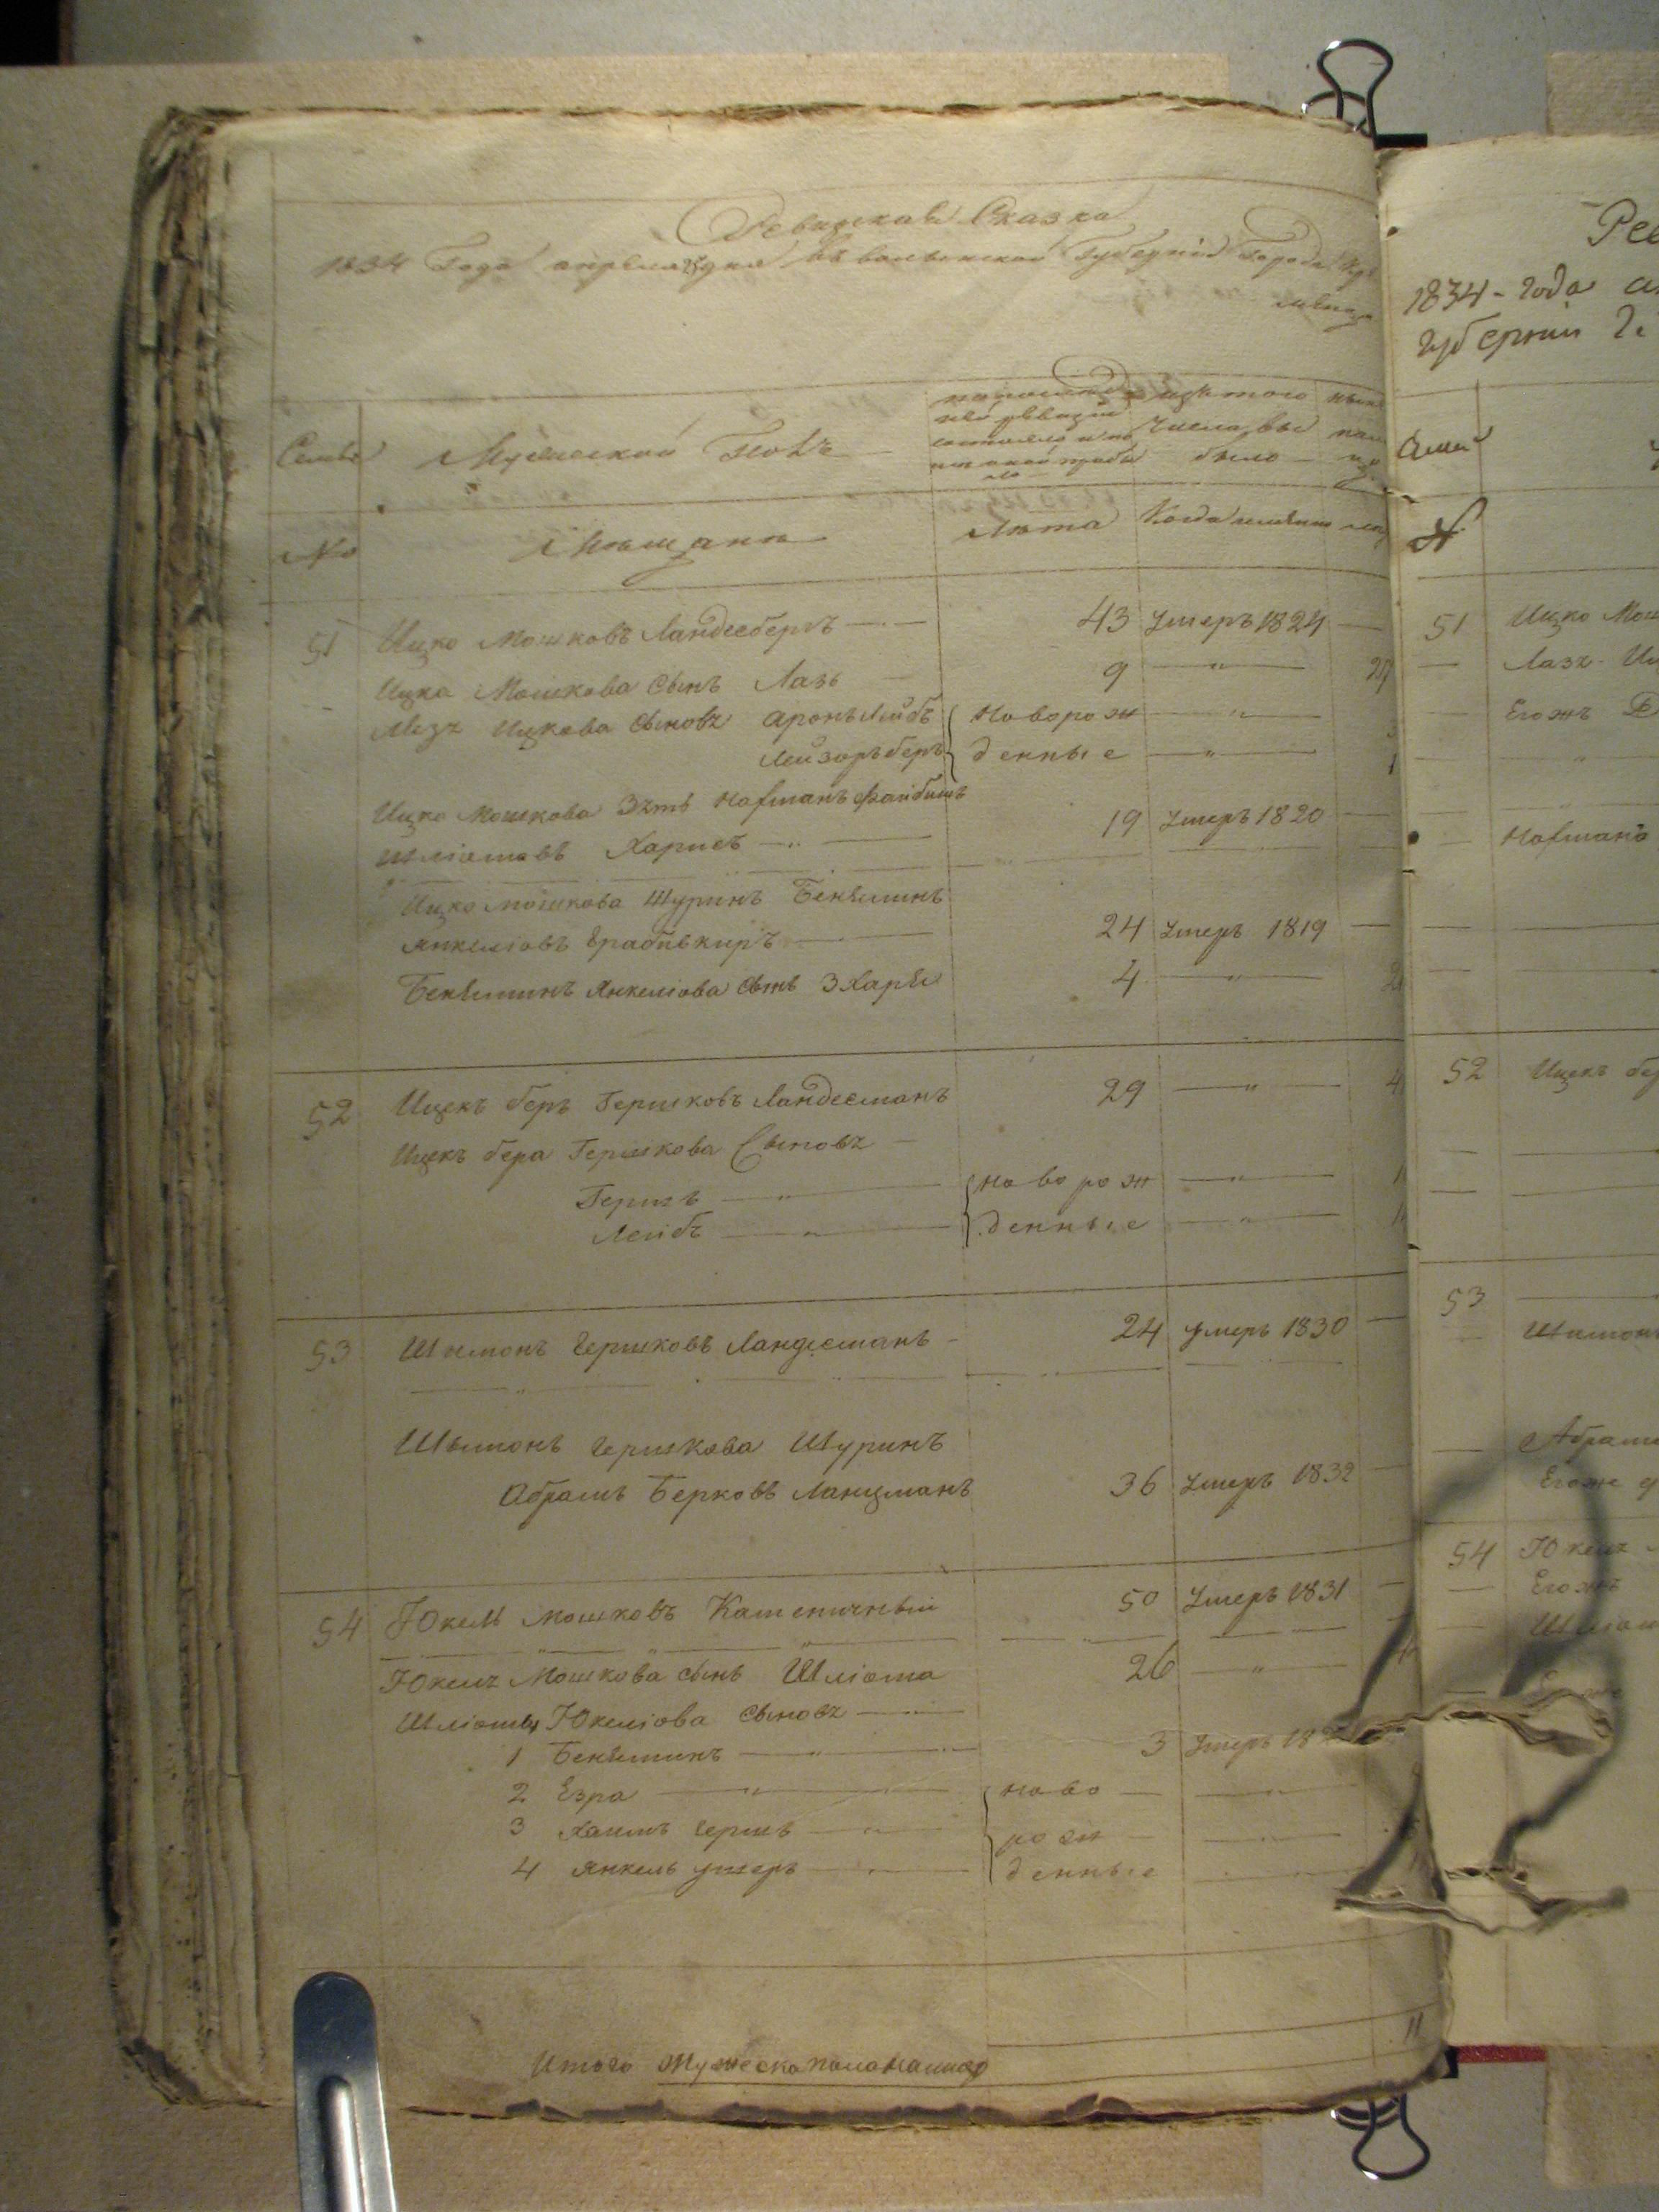 Ревизская Сказка
1834 Года апреля 25 дня въ волынской Губерніи Города Кре
менца
Семьи
Мужеской Полъ
по последней ревизіи состояло и по
изъ того числа выбыло
№
Мещане
Лета
Когда именно
51 Ицко Мошковъ Ландесбергъ 43 Умеръ 1824
Ицка Мошкова Сынъ Лазъ 9 " 27
Лазъ Ицкова Сыновъ Аронъ Лейбъ новорож "
Лейзоръ беръ денные " 1
Ицко Мошкова Зять Нафманъ Файбишъ
Шліомовъ Харисъ 19 Умеръ 1820
Ицко Мошкова Шуринъ Беніеминъ
Янкеліовъ 24 Умеръ 1819
Беніеминъ Янкеліова Сынъ Зхарія 4 "
52 Ицекъ беръ Гершковъ Ландесманъ 29 "
Ицекъ бера Гершкова Сыновъ
Гершъ новорож "
Лейбъ денные "
53 Шимонъ Гершковъ Ландесманъ 24 умеръ 1830
Шимонъ Гершкова Шуринъ
Абрамъ Берковъ Ланцманъ 36 Умеръ 1832
54 Юкель Мошковъ Каменичный 50 Умеръ 1831
Юкелъ Мошкова сынъ Шліома 26 "
Шліомы Юкеліова сыновъ
1 Беніеминъ 3 Умеръ 18
2 Езра ново
3 Хаимъ Гершъ рож
4 Янкель умеръ денные
Итого Мужеска пола налицо 11
Рев
1834 - года а
губерніи
Семьи
№
51 Ицко Мош
Лазъ Иц
Егожъ
Нафмана
52 Ицекъ бер
53
Шимонъ
Абрам
Егоже
54 Юкелъ
Егожъ
Шліом